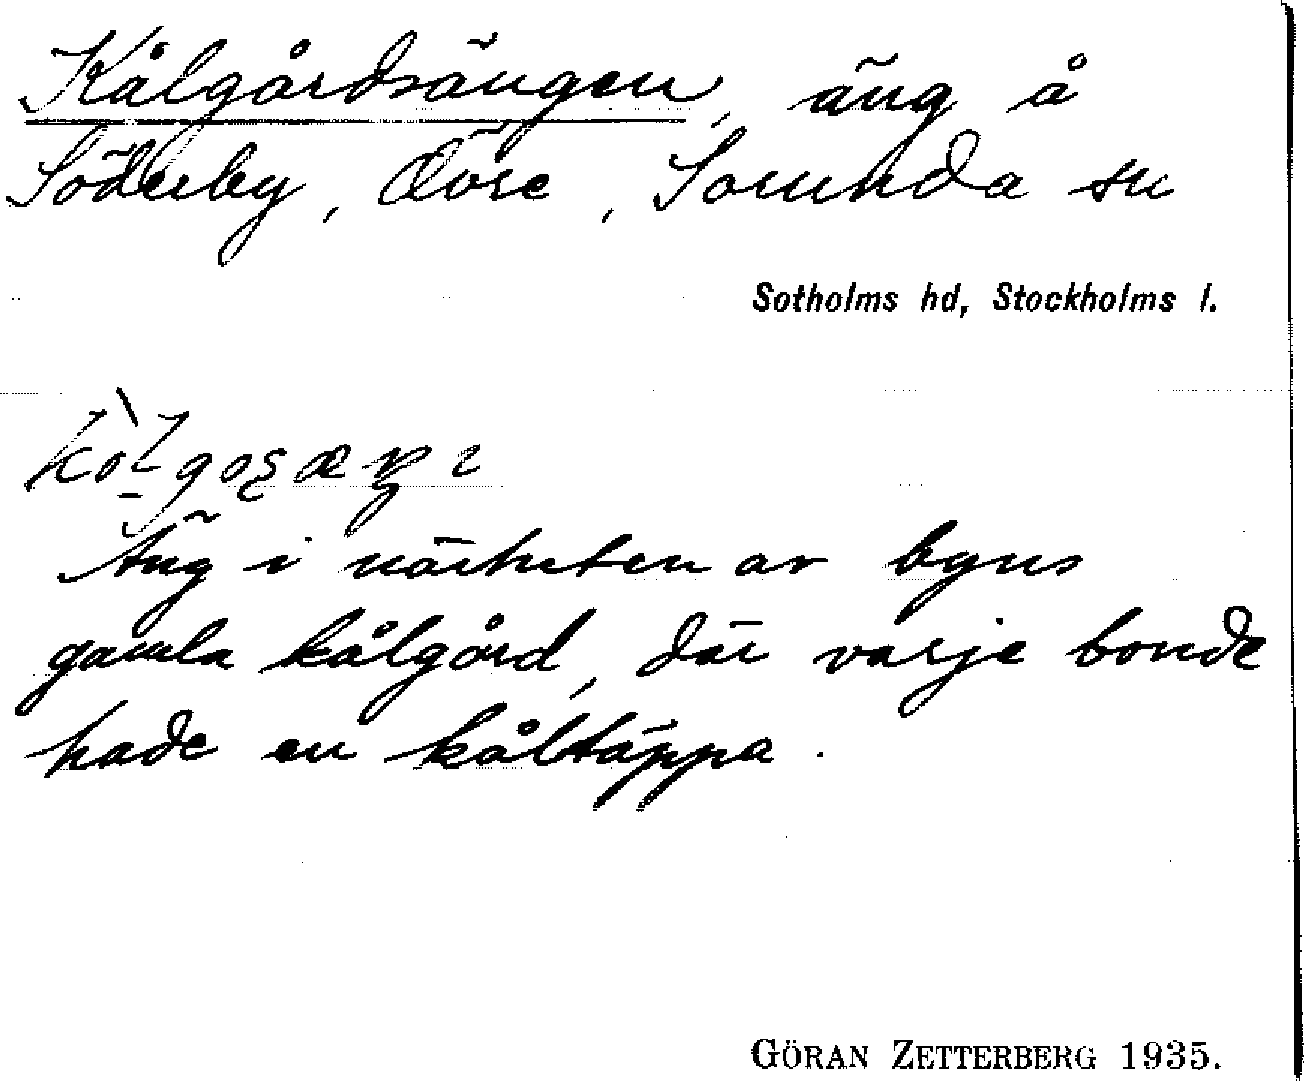 Kålgårdsängen, äng å
Söderby, Övre, Sorunda sn
Sotholms hd, Stockholms l.
Äng i närheten av byns
gamla kålgård, där varje bonde
hade en kåltäppa.
GÖRAN ZETTERBERG 1935.